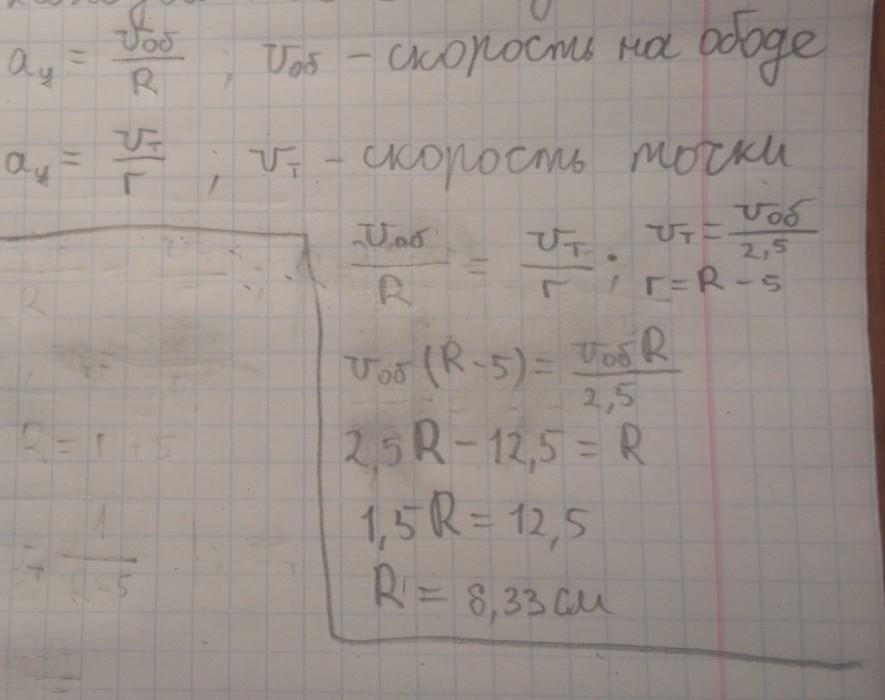 aц = vоб/R ; vоб – скорость на ободе
aц = vт/r ; vт – скорость точки
vоб/R = vт/r ; vт = vоб/2,5
r = R - 5
vоб (R - 5) = vоб R/2,5
2,5R - 12,5 = R
1,5R = 12,5
R = 8,33 см
R = r + 5